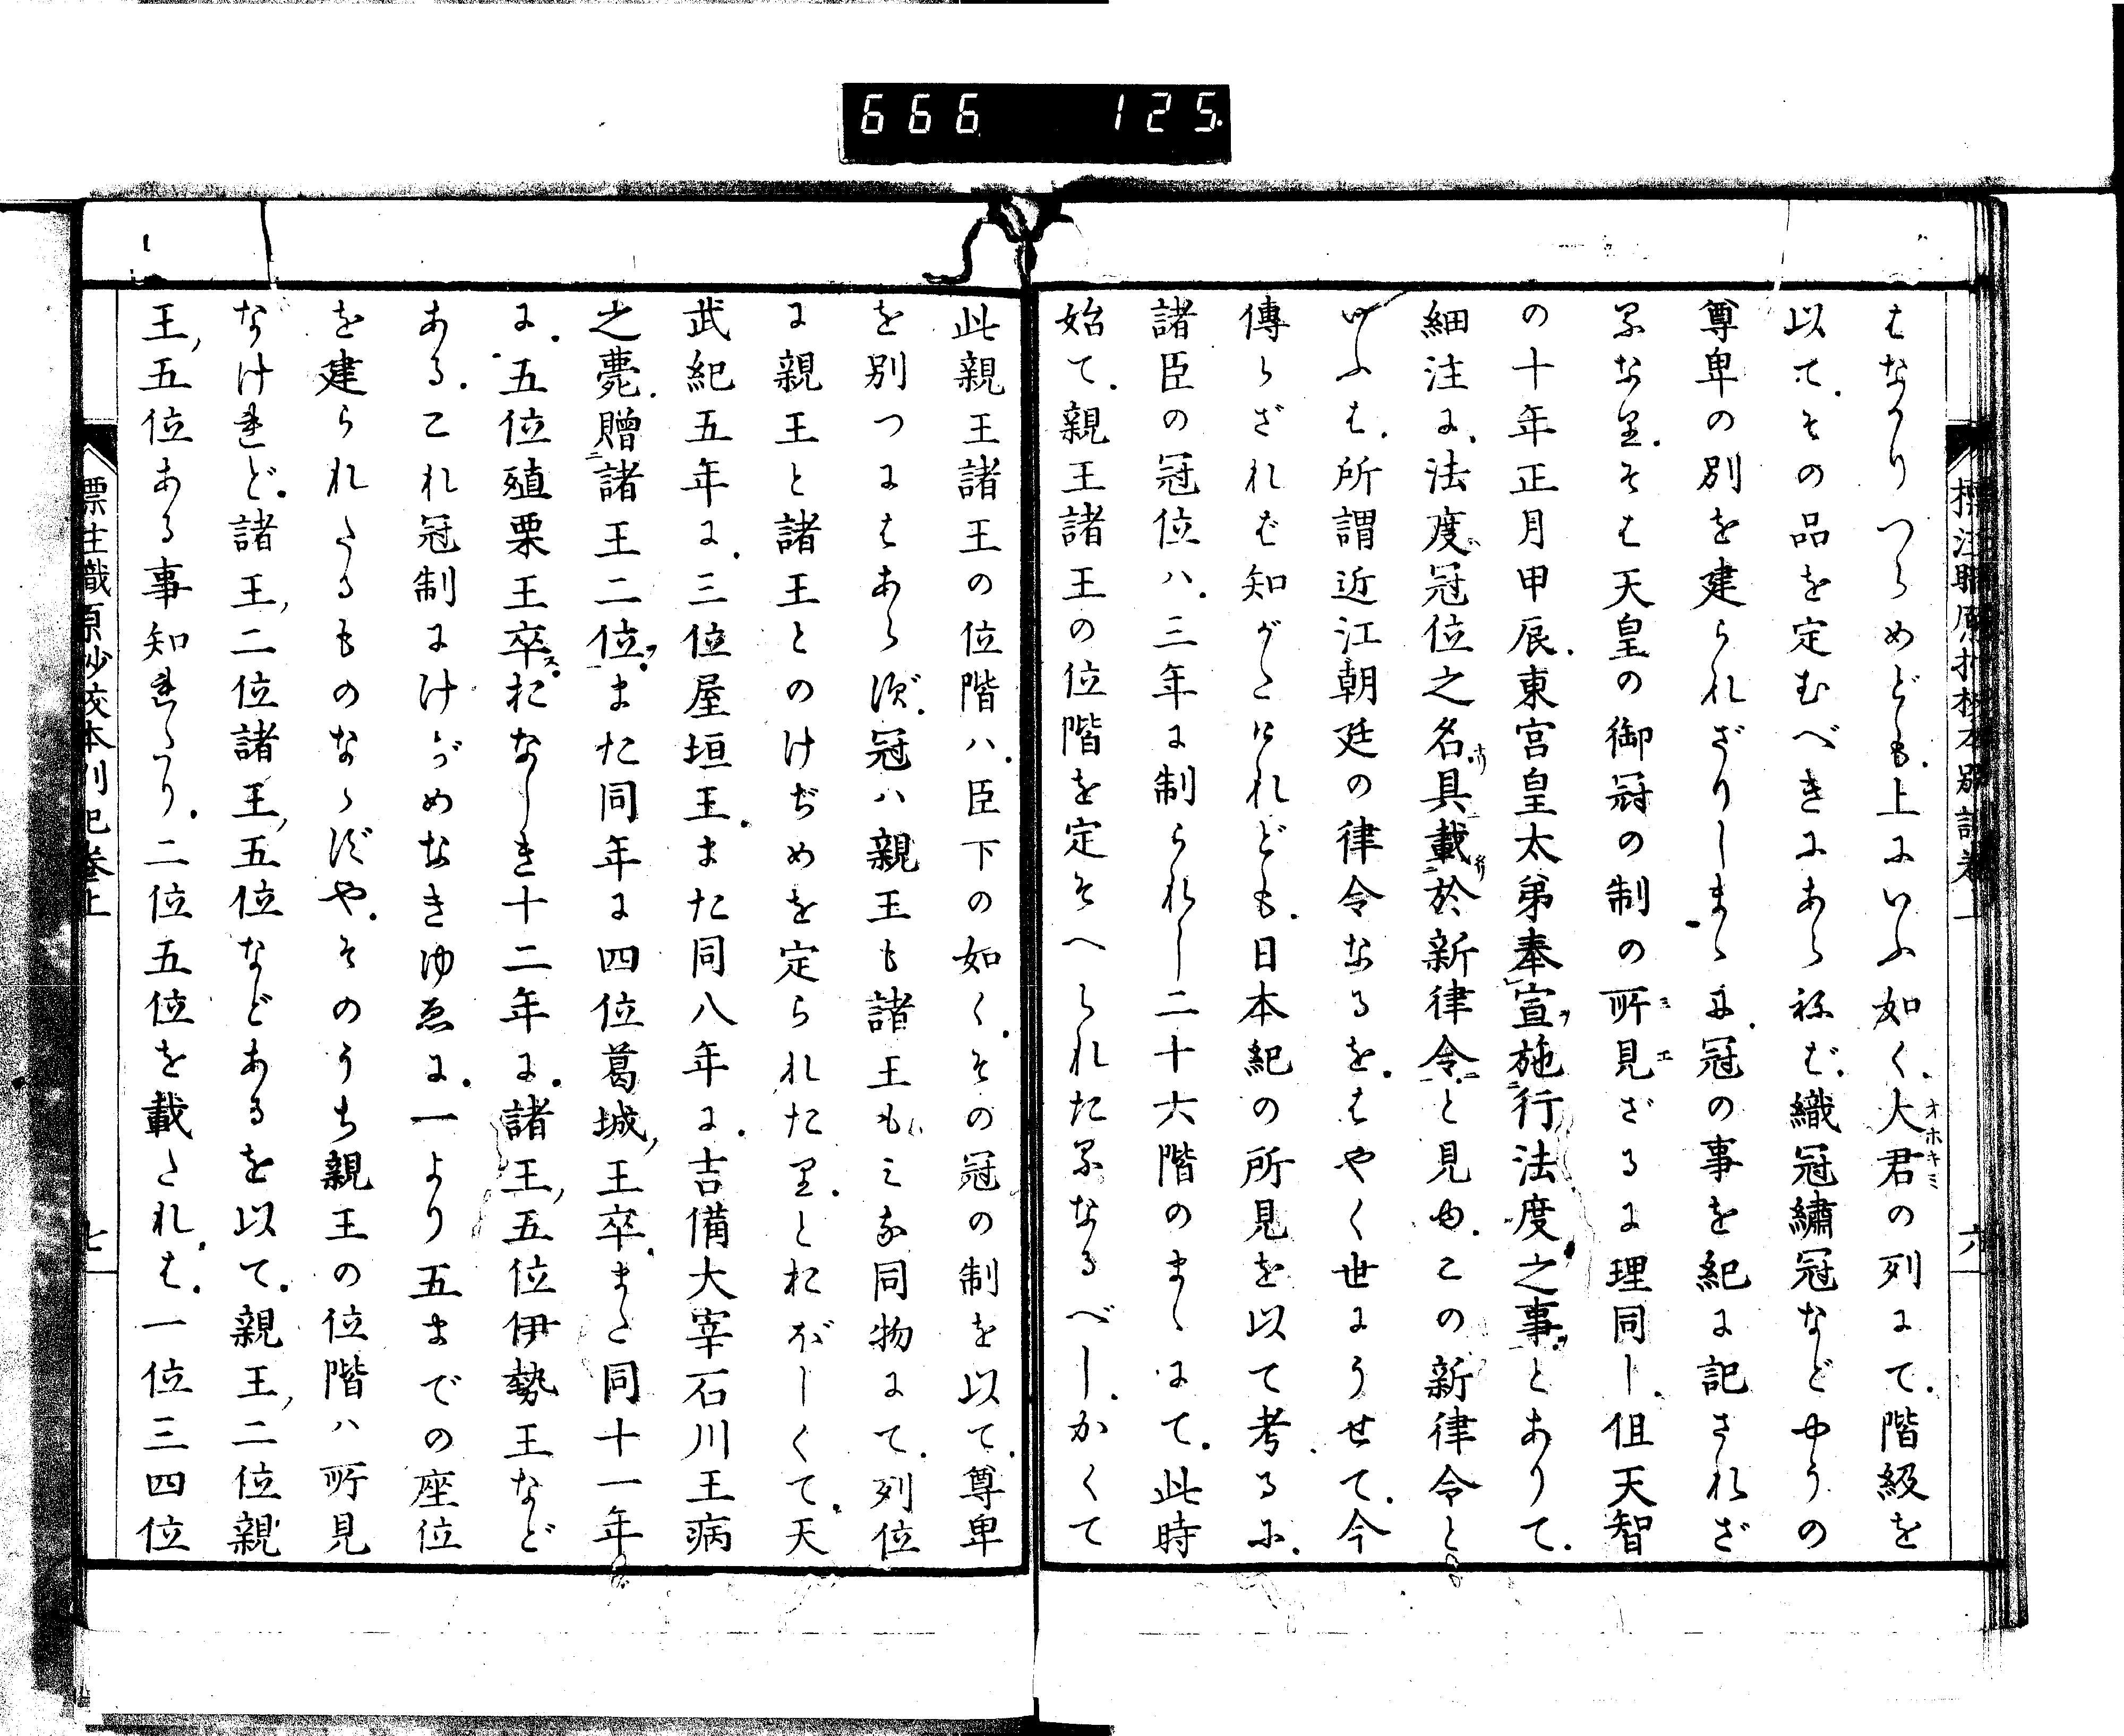 666 125
標注職原抄校本別記巻上
六
はなかりつらめども.上にいふ如く.大君の列にて.階級を
以て.その品を定むべきにあらねば.織冠繡冠などやうの
尊卑の別を建られざりしまゝに.冠の事を紀に記されざ
るなり.そは天皇の御冠の制の所見ざるに理同し.但天智
の十年正月甲辰.東宮皇太弟奉宣施行法度之事とありて.
細注に.法度冠位之名具載於新律令と見ゆ.この新律令と
いふは.所謂近江朝廷の律令なるを.はやく世にうせて.今
傳らざれば知がたけれども.日本紀の所見を以て考るに.
諸臣の冠位ハ.三年に制られし二十六階のまゝにて.此時
始て.親王諸王の位階を定そへられたるなるべし.かくて
此親王諸王の位階ハ.臣下の如く.その冠の制を以て.尊卑
を別つにはあらず.冠ハ親王も諸王もみな同物にて.列位
に親王と諸王とのけぢめを定られたり.とおぼしくて.天
武紀五年に.三位屋垣王.また同八年に.吉備大宰石川王病
之薨.贈諸王二位.また同年に四位葛城王卒.また同十一年
に.五位殖栗王卒.おなしき十二年に.諸王五位伊勢王など
ある.これ冠制にけぢめなきゆゑに.一より五までの座位
を建られたるものならずや.そのうち親王の位階ハ所見
なけれど.諸王二位諸王五位などあるを以て.親王二位親
王五位ある事知れたり.二位五位を載たれは.一位三四位
標注職原抄校本別記巻上
七